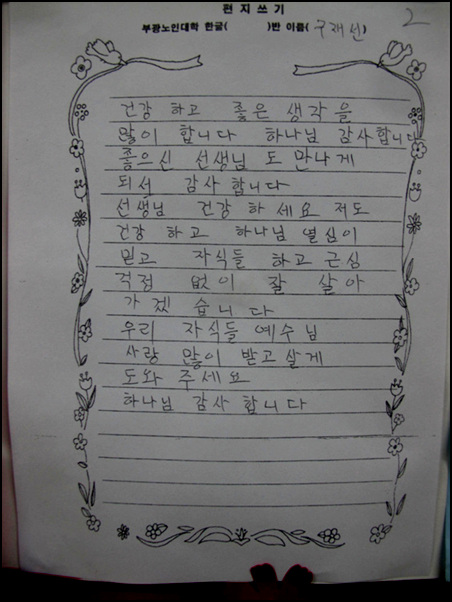 편 지 쓰 기
2
부광노인대학 한글( )반 이름( 구재선)
건강 하고 좋은 생각을
많이 합니다 하나님 감사합니다
좋으신 선생님 도 만나게
되서 감사 합니다
선생님 건강 하 세요 저도
건강 하고 하나님 열심이
믿고 자식들 하고 근심
걱정 없이 잘 살아
가겠 습니다
우리 자식들 예수님
사랑 많이 받고살게
도와 주세요
하나님 감사 합니다